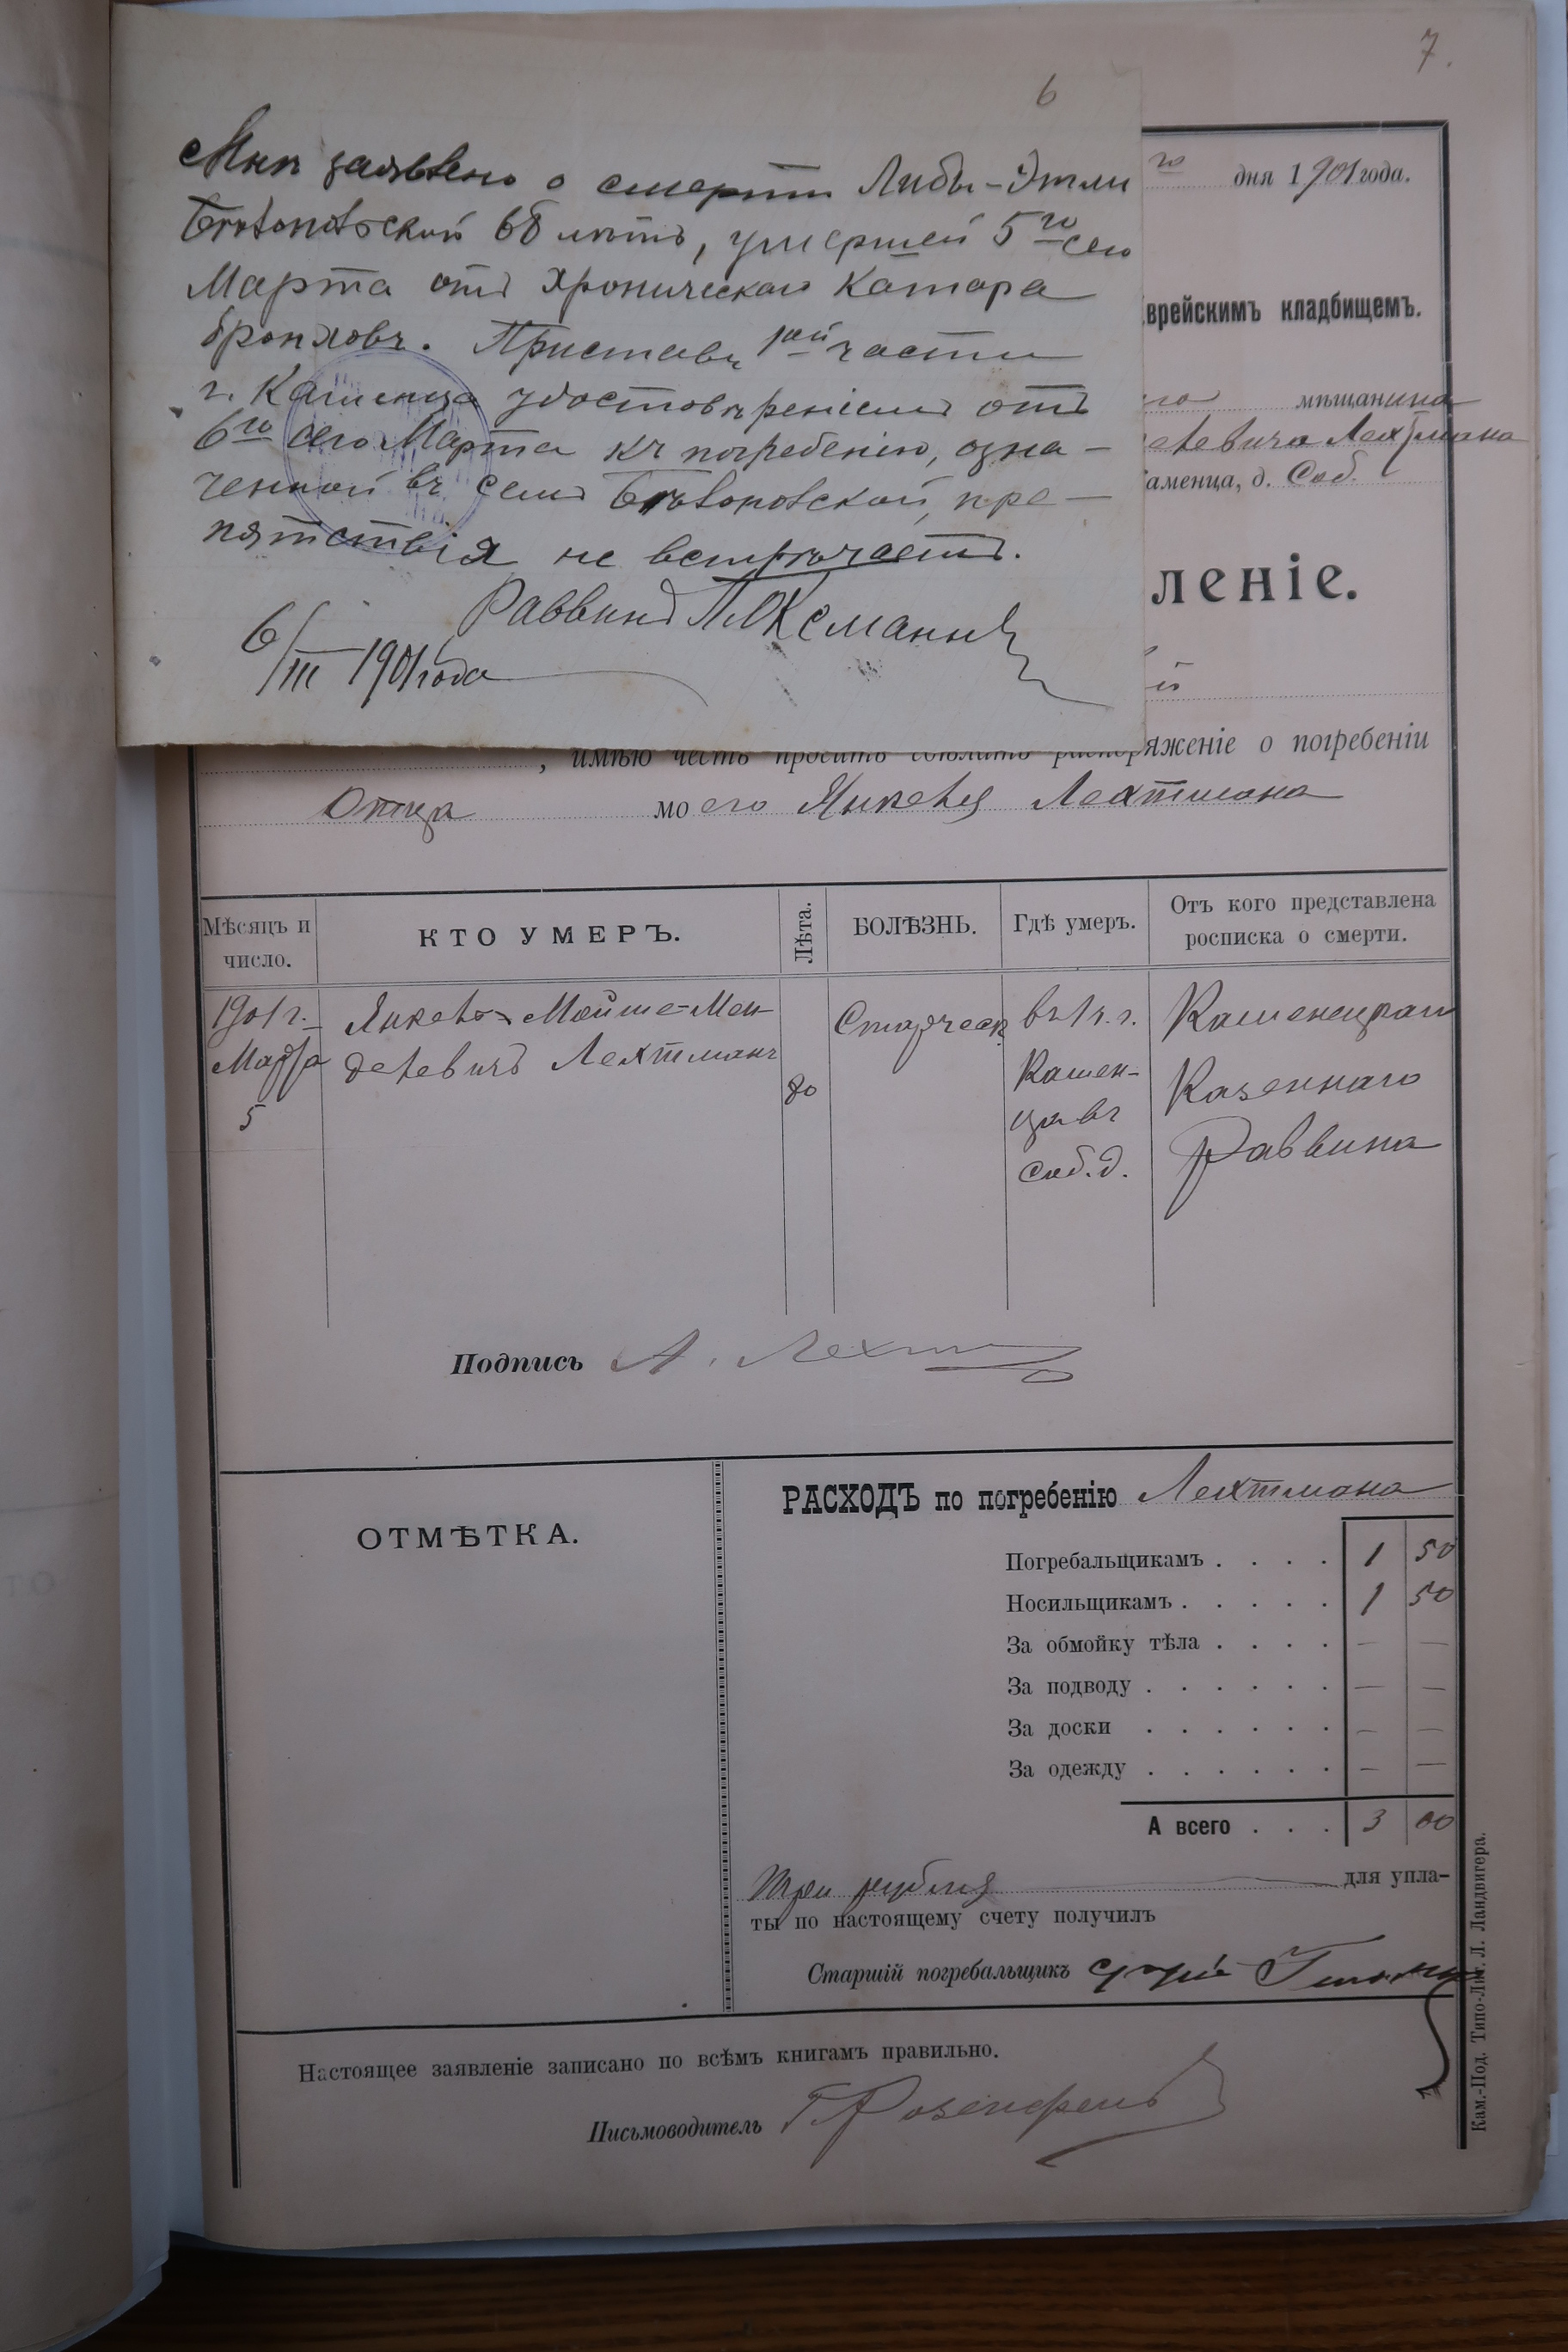 7.
6
Мнѣ заявлено о смерти Либы-Этли
68 лѣтъ, умершей 5го сего
Марта отъ хроническаго катара
бронховъ. Приставъ 1ой части
г. Каменца удостовѣреніемъ отъ
6го сего Марта къ погребенію, озна-
ченной въ семъ пре-
пятствія не встрѣчаетъ.
Раввинъ
6/III 1901 года
го дня 1901 года.
врейскимъ кладбищемъ.
го мѣщанина
елевича Лехтмана
аменца, д. Соб.
леніе.
й
, имѣю честь просить сдѣлать распоряженіе о погребеніи
Отца моего Янкеля Лехтмана
Мѣсяцъ и число.
КТО УМЕРЪ.
Лѣта.
БОЛѢЗНЬ.
Гдѣ умеръ.
Отъ кого представлена росписка о смерти.
1901 г.
Марта
5
Янкель Мойше-Мен-
делевичъ Лехтманъ
80
Старческ
въ г.
Камен-
цѣ въ
соб. д.
Каменецкаго
Казеннаго
Раввина
Подпись А. Лехт
ОТМѢТКА.
РАСХОДЪ по погребенію Лехтмана
Погребальщикамъ . . . . 1 50
Носильщикамъ . . . . . 1 50
За обмойку тѣла . . . . — —
За подводу . . . . . . — —
За доски . . . . . . — —
За одежду . . . . . . — —
А всего . . . 3 00
Три рубля для упла-
ты по настоящему счету получилъ
Старшій погребальщикъ
Настоящее заявленіе записано по всѣмъ книгамъ правильно.
Письмоводитель Розенфельд
Кам.-Под. Типо-Лит. Л. Ландвигера.